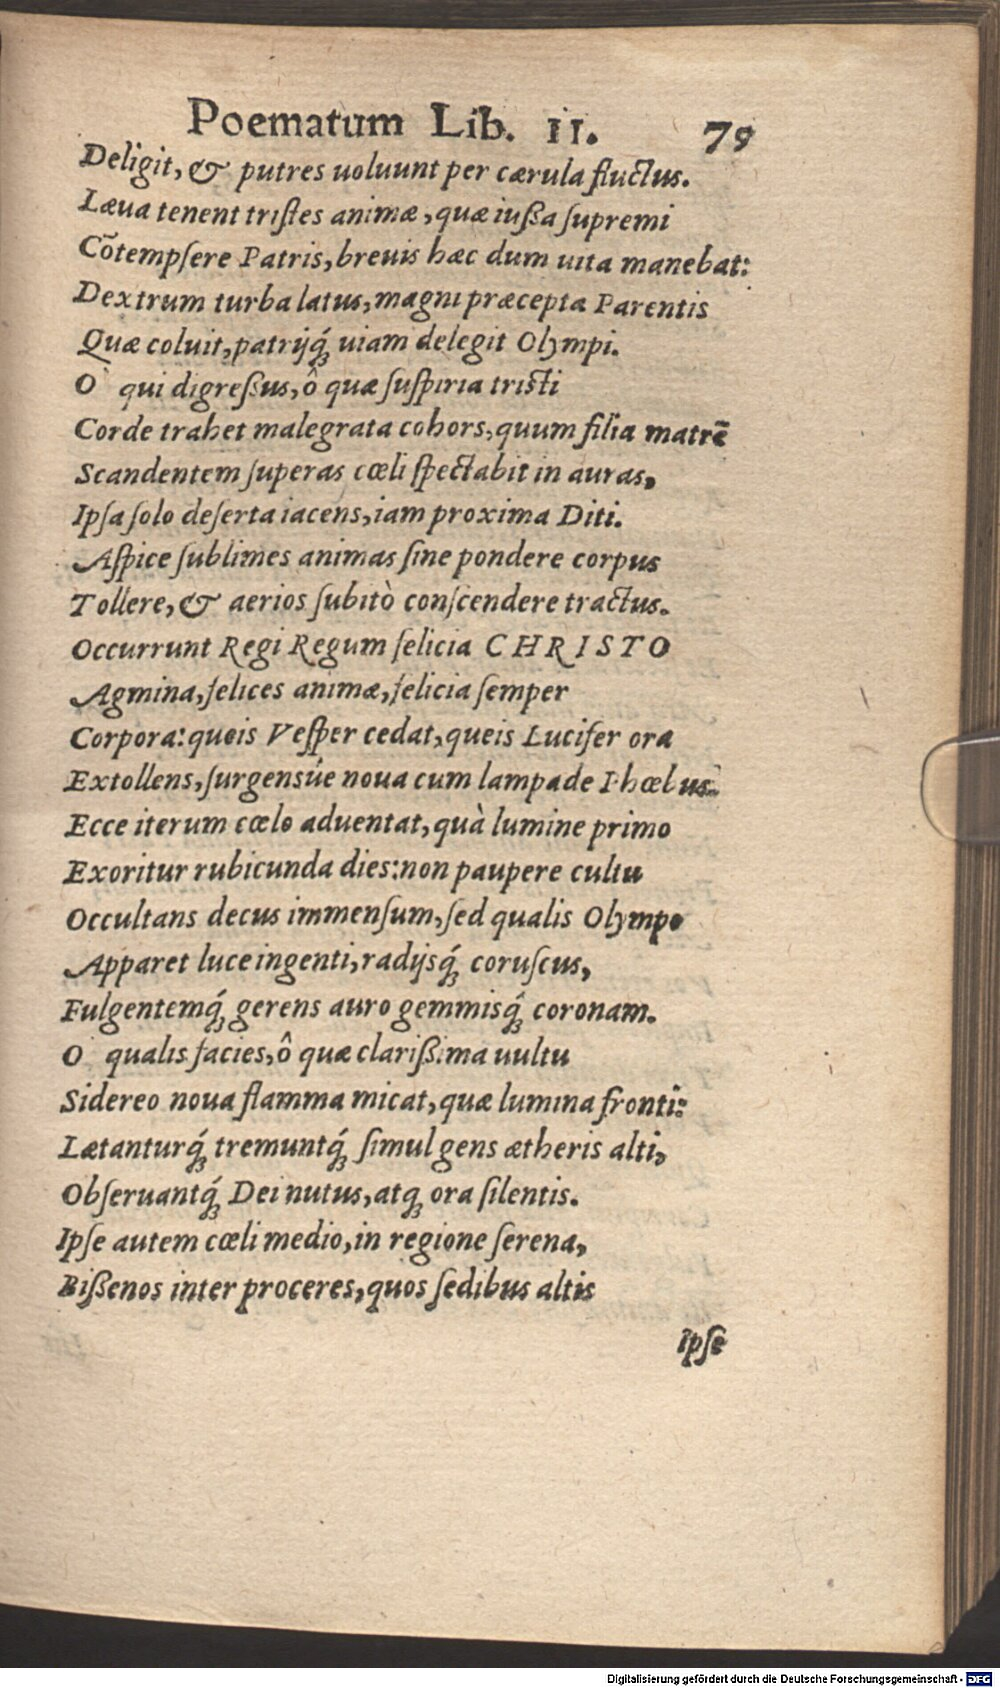 Poematum Lib. II. 79
Deligit, & putres uoluunt per cærula fluctus.
Læua tenent tristes animæ, quæ iußa supremi
Cōtempsere Patris, breuis hæc dum uita manebat:
Dextrum turba latus, magni præcepta Parentis
Quæ coluit, patrijq́; uiam delegit Olympi.
O qui digreßus, ô quæ suspiria tristi
Corde trahet malegrata cohors, quum filia matrē
Scandentem superas cœli spectabit in auras,
Ipsa solo deserta iacens, iam proxima Diti.
Aspice sublimes animas sine pondere corpus
Tollere, & aerios subitò conscendere tractus.
Occurrunt Regi Regum felicia CHRISTO
Agmina, felices animæ, felicia semper
Corpora: queis Vesper cedat, queis Lucifer ora
Extollens, surgensúe noua cum lampade Phœbus.
Ecce iterum cœlo aduentat, quà lumine primo
Exoritur rubicunda dies: non paupere cultu
Occultans decus immensum, sed qualis Olympo
Apparet luce ingenti, radijsq́; coruscus,
Fulgentemq́; gerens auro gemmisq́; coronam.
O qualis facies, ô quæ clarißima uultu
Sidereo noua flamma micat, quæ lumina fronti:
Lætanturq́; tremuntq́; simul gens ætheris alti,
Obseruantq́; Dei nutus, atq; ora silentis.
Ipse autem cœli medio, in regione serena,
Bißenos inter proceres, quos sedibus altis
Ipse
Digitalisierung gefördert durch die Deutsche Forschungsgemeinschaft - DFG